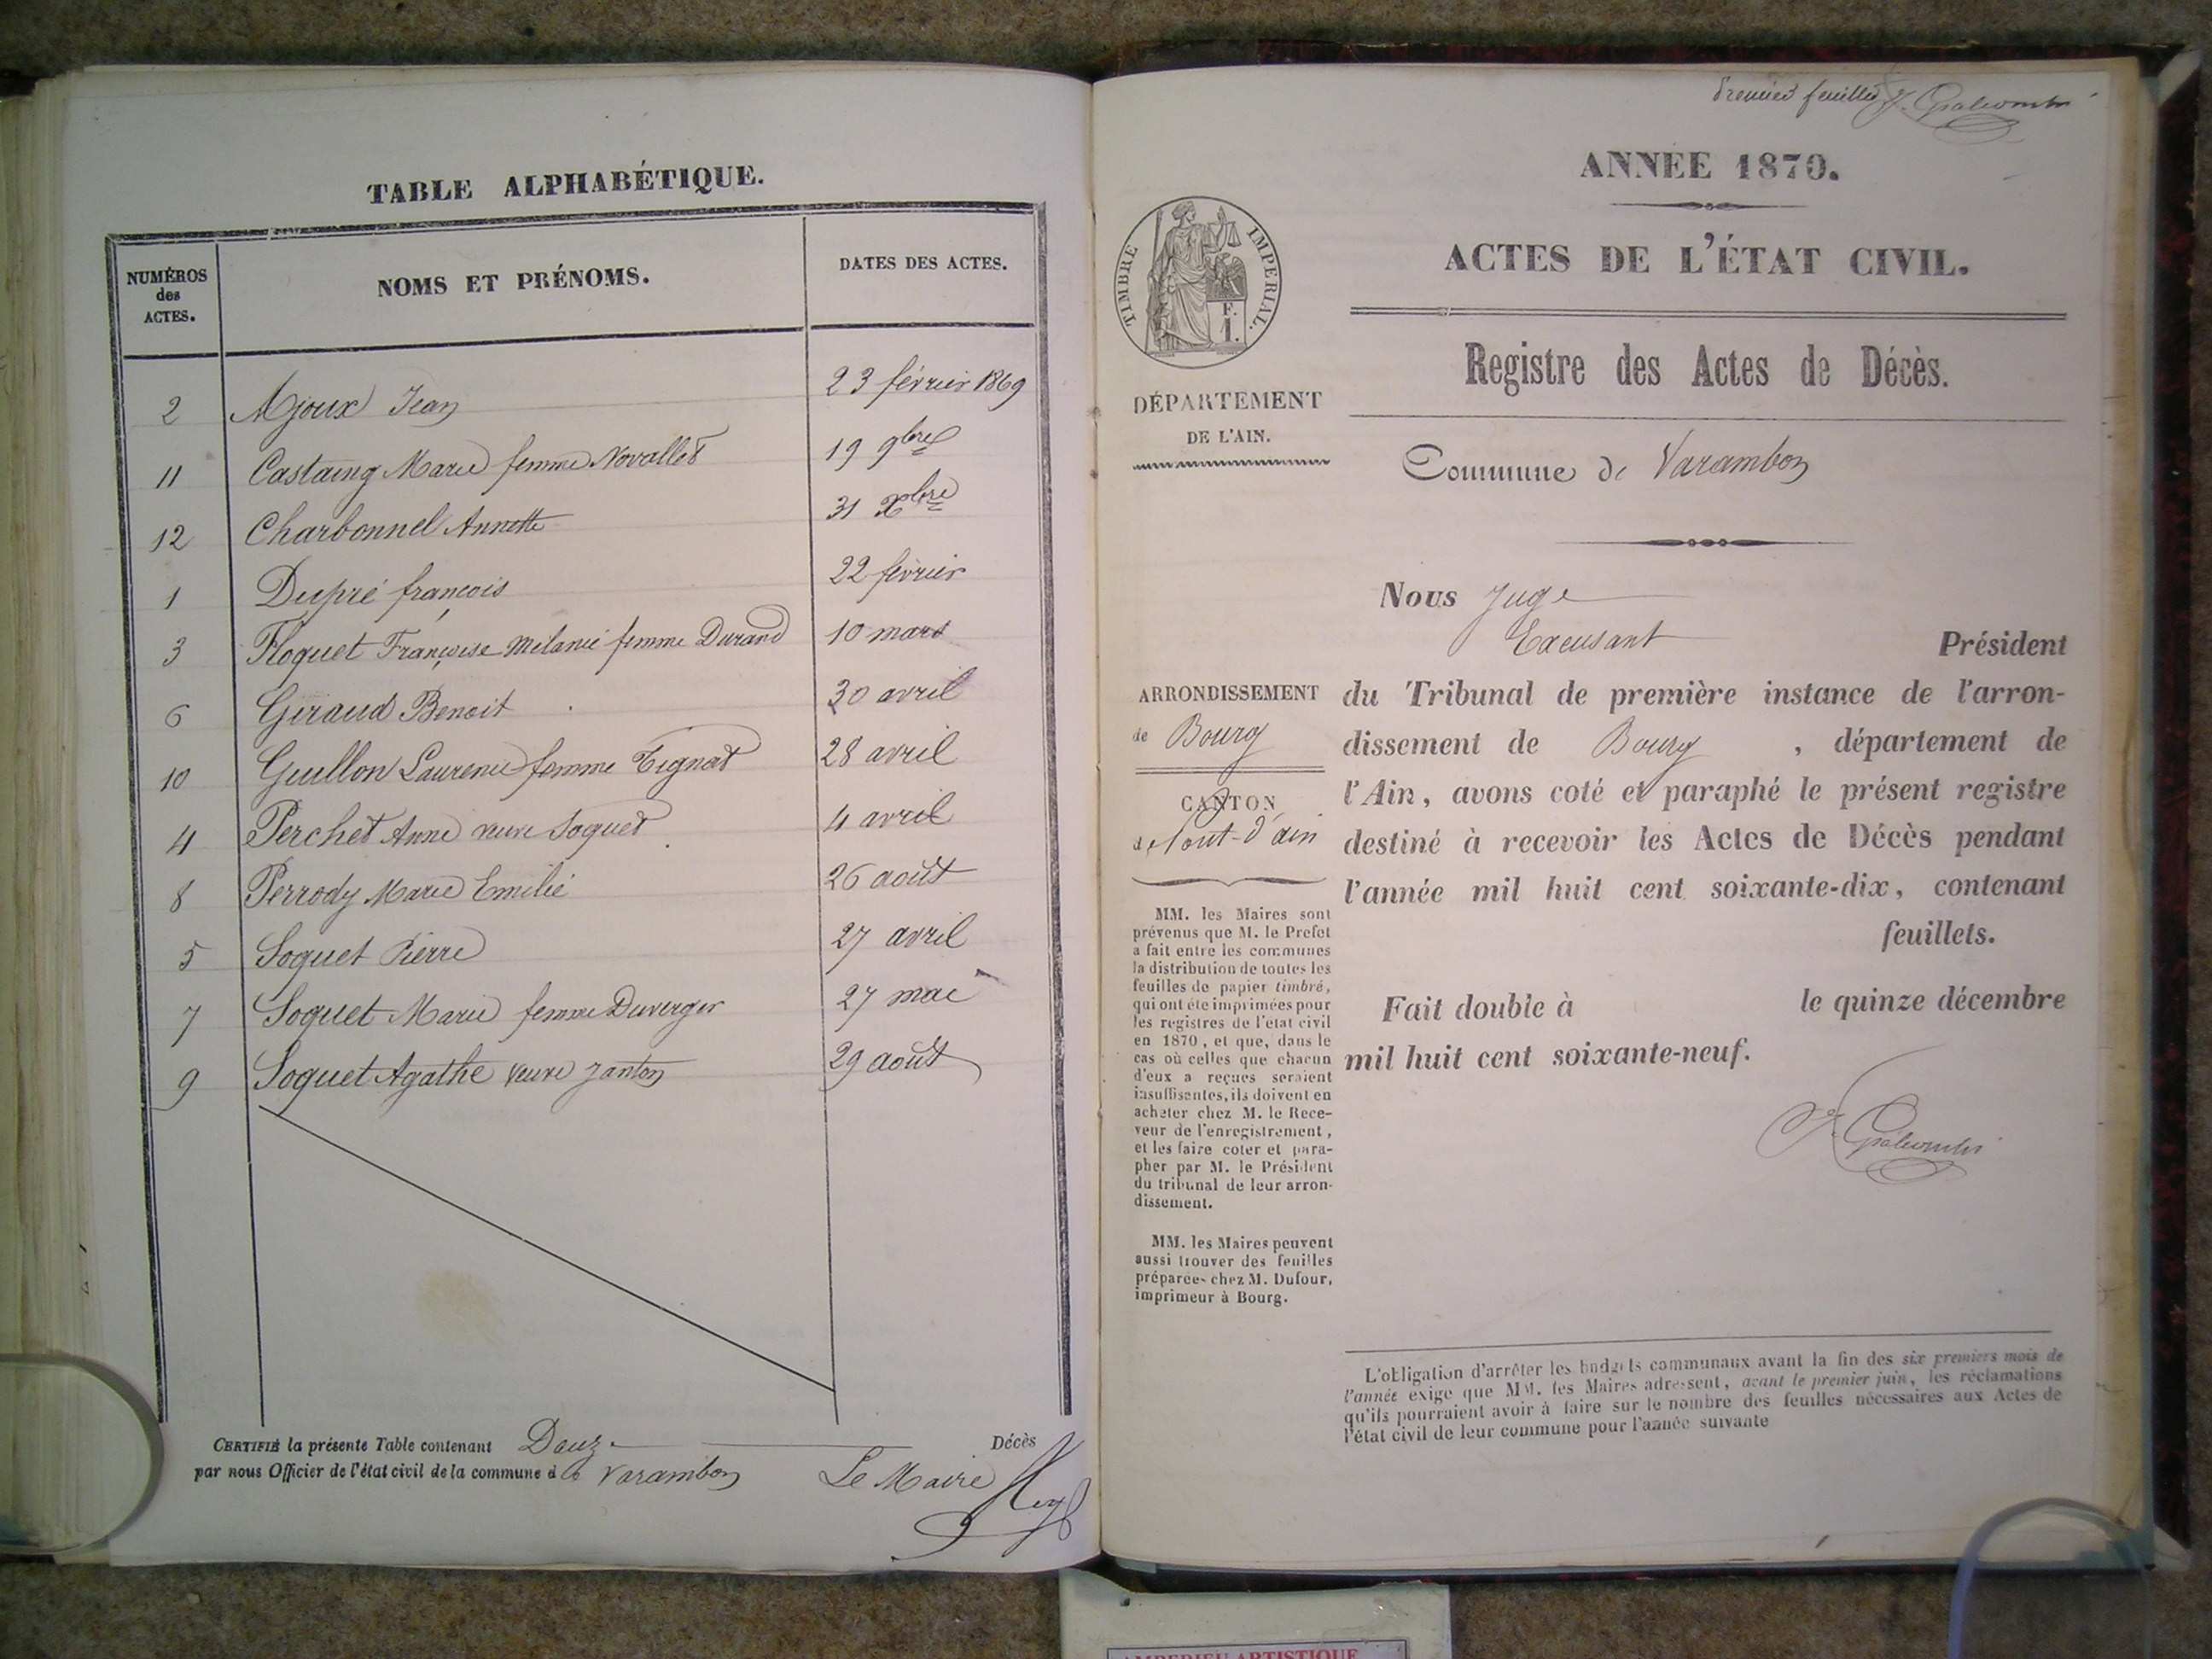 TABLE ALPHABÉTIQUE.
NUMÉROS des ACTES. NOMS ET PRÉNOMS. DATES DES ACTES.
2 Ajoux Jean 23 février 1869
11 Castaing Marie femme Novallet 19 9bre
12 Charbonnel Annette 31 Xbre
1 Dupré françois 22 février
3 Floquet Françoise Mélanie femme Durand 10 mars
6 Giraud Benoit 30 avril
10 Guillon Laurence femme Tignat 28 avril
4 Perchet Anne veuve Soquet 4 avril
8 Perrody Marie Emilie 26 août
5 Soquet Pierre 27 avril
7 Soquet Marie femme Duverger 27 mai
9 Soquet Agathe veuve Janton 29 août
CERTIFIÉ la présente Table contenant Douze Décès
par nous Officier de l'état civil de la commune de Varambon Le Maire
Premier feuillet
ANNÉE 1870.
ACTES DE L'ÉTAT CIVIL.
TIMBRE IMPERIAL.
F.
1.
Registre des Actes de Décès.
DÉPARTEMENT
DE L'AIN.
Commune de Varambon
Nous Juge
Président
ARRONDISSEMENT
de Bourg
CANTON
de Pont-d'ain
du Tribunal de première instance de l'arron-
dissement de Bourg, département de
l'Ain, avons coté et paraphé le présent registre
destiné à recevoir les Actes de Décès pendant
l'année mil huit cent soixante-dix, contenant
feuillets.
Fait double à le quinze décembre
mil huit cent soixante-neuf.
MM. les Maires sont
prévenus que M. le Prefet
a fait entre les communes
la distribution de toutes les
feuilles de papier timbré,
qui ont été imprimées pour
les registres de l'état civil
en 1870, et que, dans le
cas où celles que chacun
d'eux a reçues seraient
insuffisantes, ils doivent en
acheter chez M. le Rece-
veur de l'enregistrement,
et les faire coter et para-
pher par M. le Président
du tribunal de leur arron-
dissement.
MM. les Maires peuvent
aussi trouver des feuilles
préparées chez M. Dufour,
imprimeur à Bourg.
L'obligation d'arrêter les budgets communaux avant la fin des six premiers mois de
l'année exige que MM. les Maires adressent, avant le premier juin, les réclamations
qu'ils pourraient avoir à faire sur le nombre des feuilles nécessaires aux Actes de
l'état civil de leur commune pour l'année suivante
AMBERIEU ARTISTIQUE